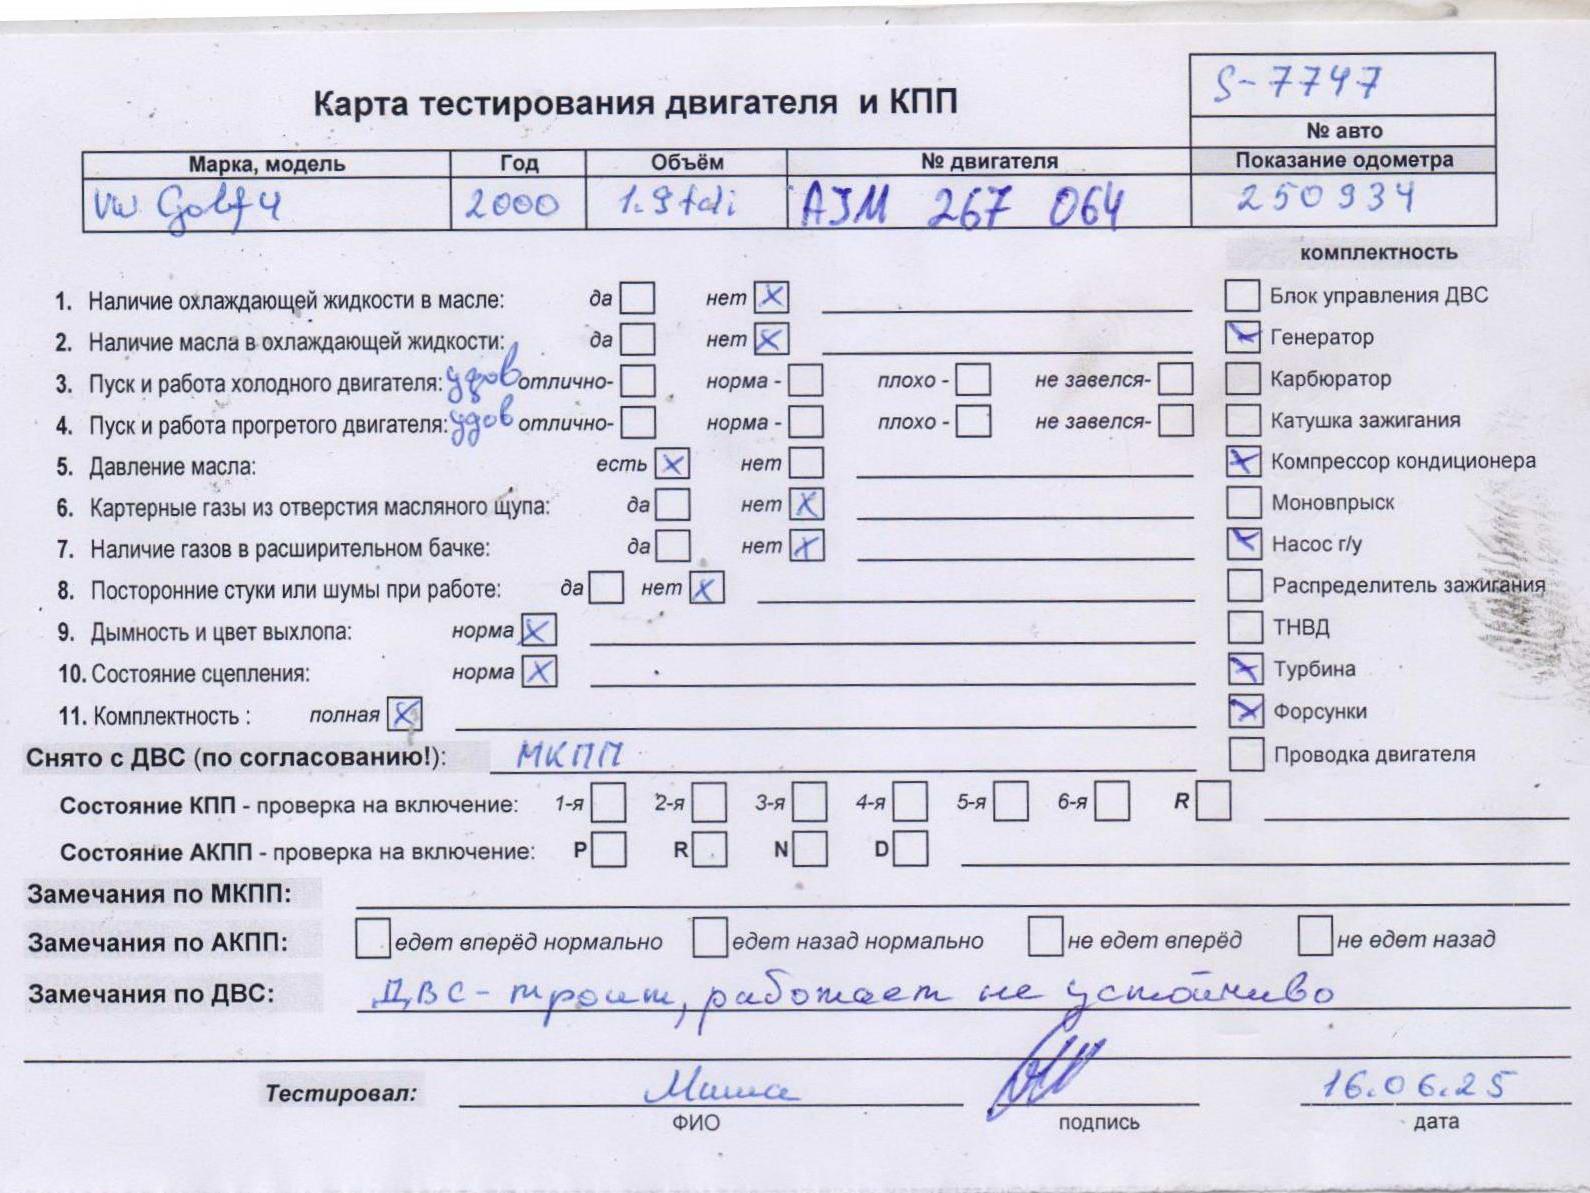 S-7747
Карта тестирования двигателя и КПП
№ авто
Марка, модель Год Объём № двигателя Показание одометра
VW Golf 4 2000 1.9 tdi AJM 267 064 250934
комплектность
1. Наличие охлаждающей жидкости в масле: да нет X Блок управления ДВС
2. Наличие масла в охлаждающей жидкости: да нет X X Генератор
3. Пуск и работа холодного двигателя: удов отлично- норма - плохо - не завелся- Карбюратор
4. Пуск и работа прогретого двигателя: удов отлично- норма - плохо - не завелся- Катушка зажигания
5. Давление масла: есть X нет X Компрессор кондиционера
6. Картерные газы из отверстия масляного щупа: да нет X Моновпрыск
7. Наличие газов в расширительном бачке: да нет X X Насос г/у
8. Посторонние стуки или шумы при работе: да нет X Распределитель зажигания
9. Дымность и цвет выхлопа: норма X ТНВД
10. Состояние сцепления: норма X X Турбина
11. Комплектность : полная X X Форсунки
Снято с ДВС (по согласованию!): МКПП Проводка двигателя
Состояние КПП - проверка на включение: 1-я 2-я 3-я 4-я 5-я 6-я R
Состояние АКПП - проверка на включение: P R N D
Замечания по МКПП:
Замечания по АКПП: едет вперёд нормально едет назад нормально не едет вперёд не едет назад
Замечания по ДВС: ДВС - троит, работает не устойчиво
Тестировал: Миша 16.06.25
ФИО подпись дата